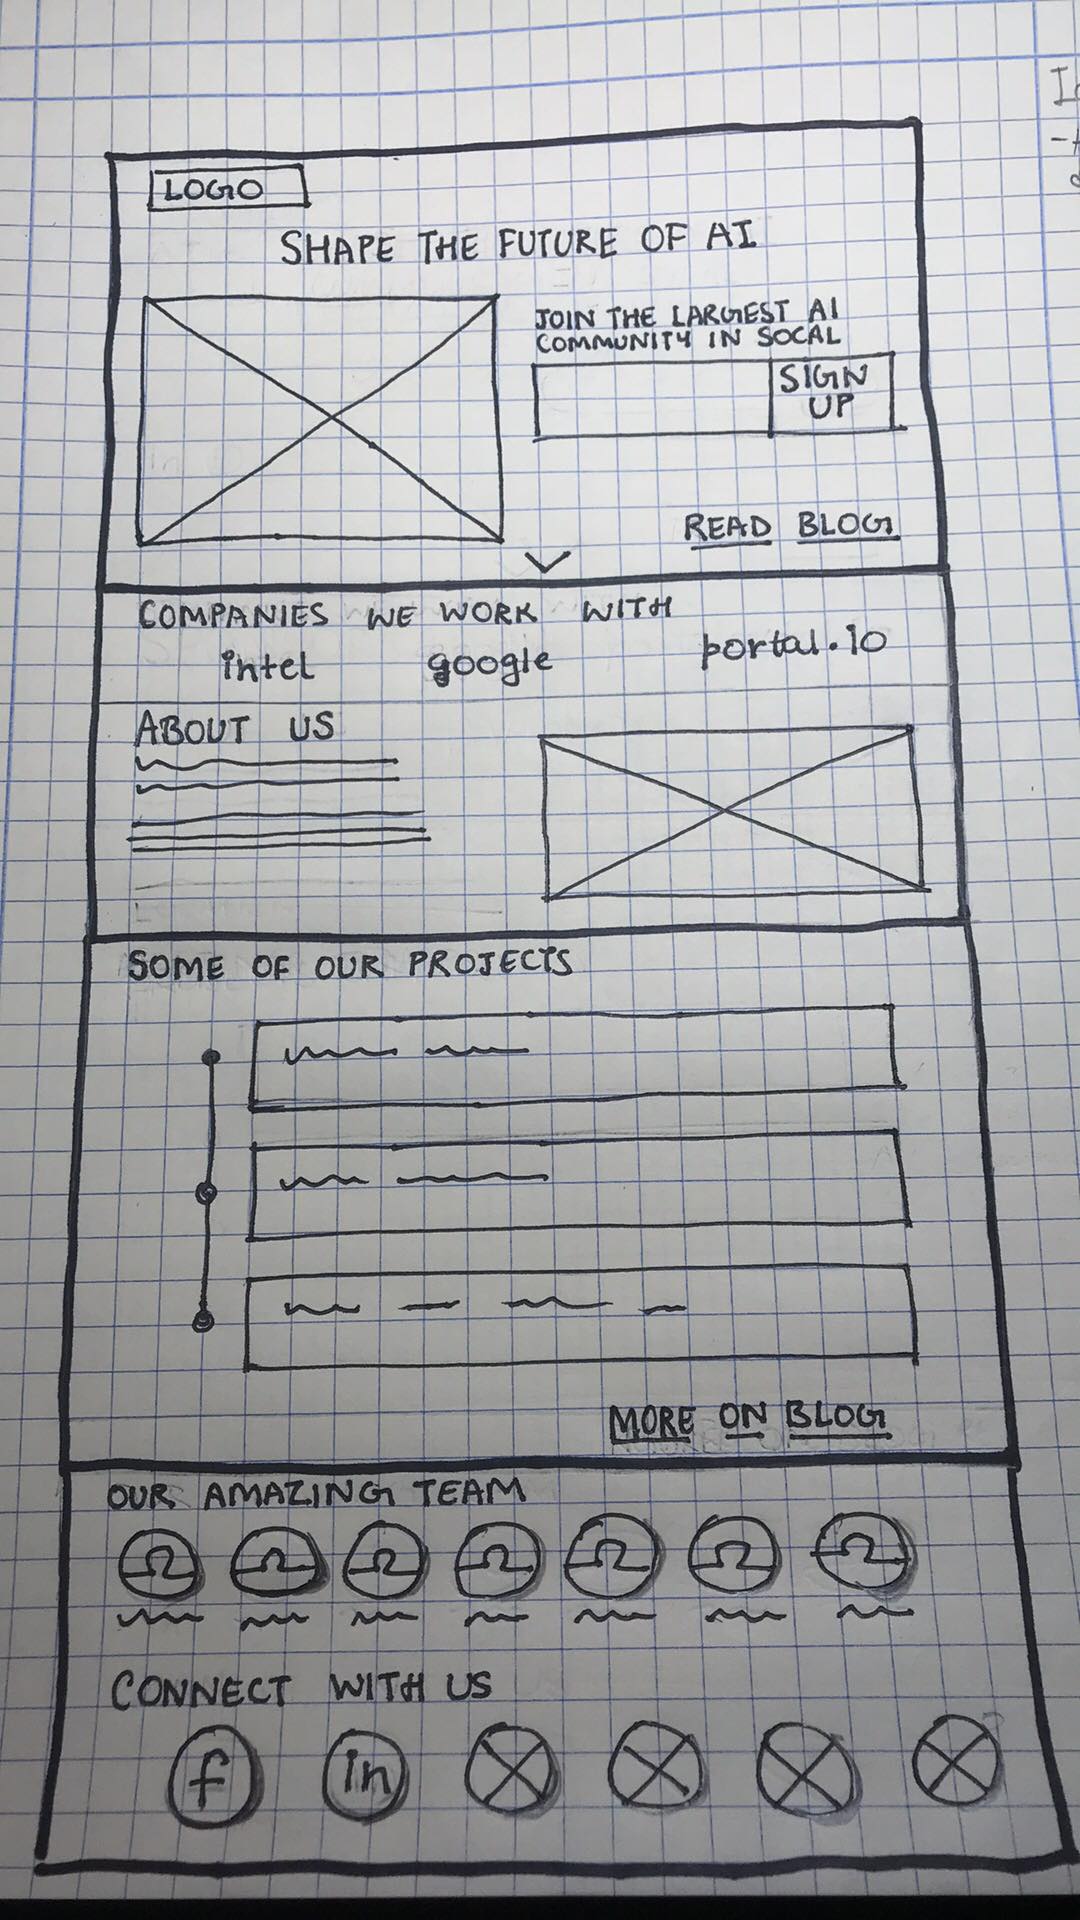 LOGO
SHAPE THE FUTURE OF AI
JOIN THE LARGEST AI
COMMUNITY IN SOCAL
SIGN
UP
READ BLOG
COMPANIES WE WORK WITH
intel google portal.io
ABOUT US
SOME OF OUR PROJECTS
MORE ON BLOG
OUR AMAZING TEAM
CONNECT WITH US
f in